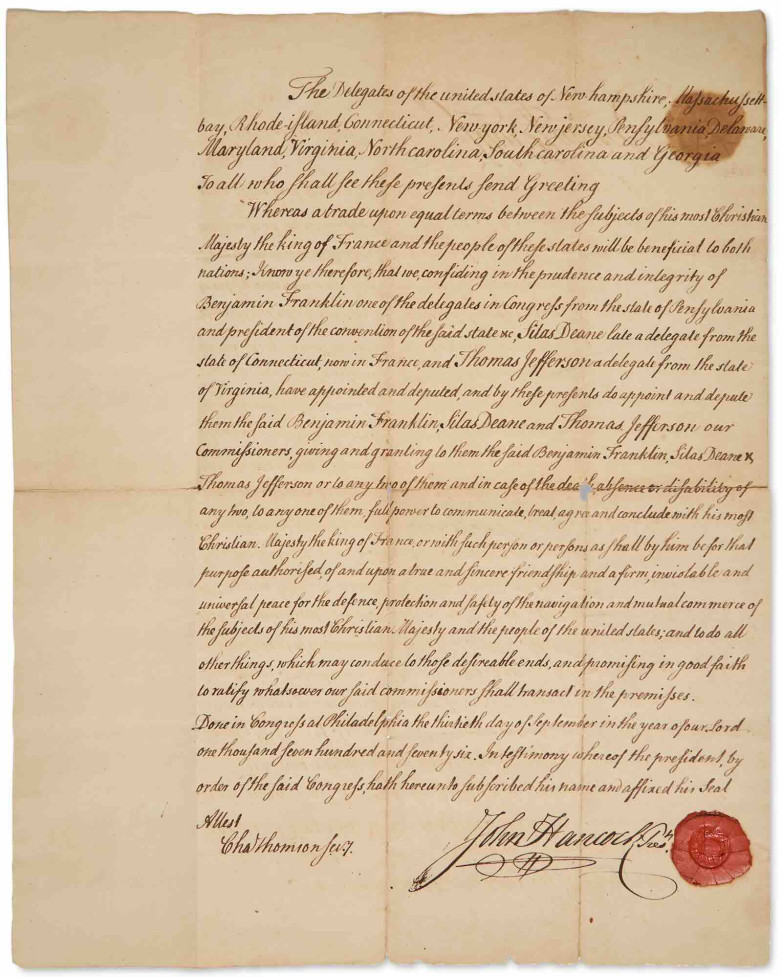 The Delegates of the united states of New-hampshire, Massachussett-
bay, Rhode-island, Connecticut, New-york, New jersey, Pensylvania Delaware,
Maryland, Virginia, North carolina, South carolina and Georgia
To all who shall see these presents send Greeting
Whereas a trade upon equal terms between the subjects of his most Christian
Majesty the king of France and the people of these states will be beneficial to both
nations; Know ye therefore, that we, confiding in the prudence and integrity of
Benjamin Franklin one of the delegates in Congress from the state of Pensylvania
and president of the convention of the said state &c, Silas Deane late a delegate from the
state of Connecticut, now in France, and Thomas Jefferson a delegate from the state
of Virginia, have appointed and deputed, and by these presents do appoint and depute
them the said Benjamin Franklin, Silas Deane and Thomas Jefferson our
Commissioners, giving and granting to them the said Benjamin Franklin, Silas Deane &
Thomas Jefferson or to any two of them and in case of the death, absence or disability of
any two, to any one of them, full power to communicate, treat, agree and conclude with his most
Christian Majesty the king of France, or with such person or persons as shall by him be for that
purpose authorised, of and upon a true and sincere friendship and a firm, inviolable and
universal peace for the defence, protection and safety of the navigation and mutual commerce of
the subjects of his most Christian Majesty and the people of the united states; and to do all
other things, which may conduce to those desireable ends, and promising in good faith
to ratify whatsoever our said commissioners shall transact in the premisses.
Done in Congress at Philadelphia the thirtieth day of September in the year of our Lord
one thousand seven hundred and seventy six. In testimony whereof the president, by
order of the said Congress, hath hereunto subscribed his name and affixed his Seal
Attest
Cha Thomson Secy.
John Hancock Presdt.